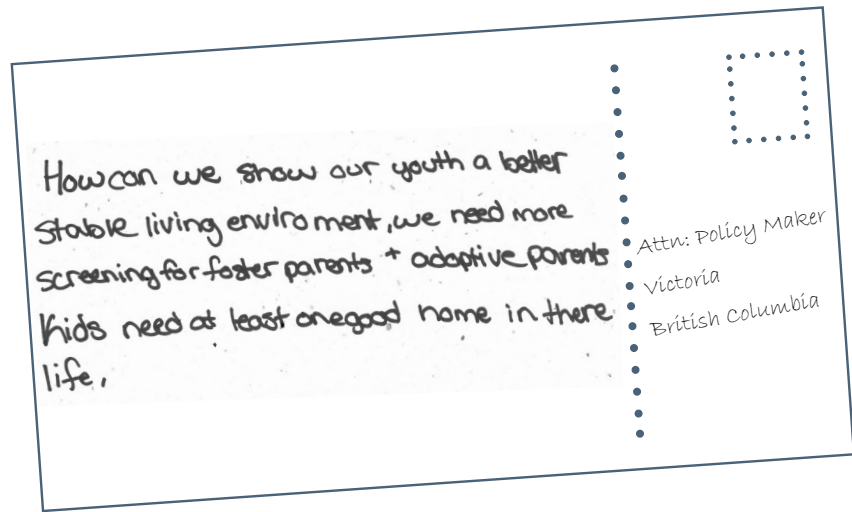 How can we show our youth a better
stable living enviroment, we need more
screening for foster parents + adoptive parents
Kids need at least one good home in there
life.
Attn: Policy Maker
Victoria
British Columbia